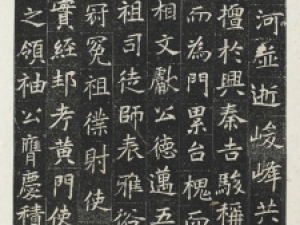 河並逝峻峰共
擅於興秦吉駿稱
而為門累台槐而
相文獻公德邁五
祖司徒師表雅俗
冠冕祖僕射使
實經邦考黃門使
之領袖公膺慶積